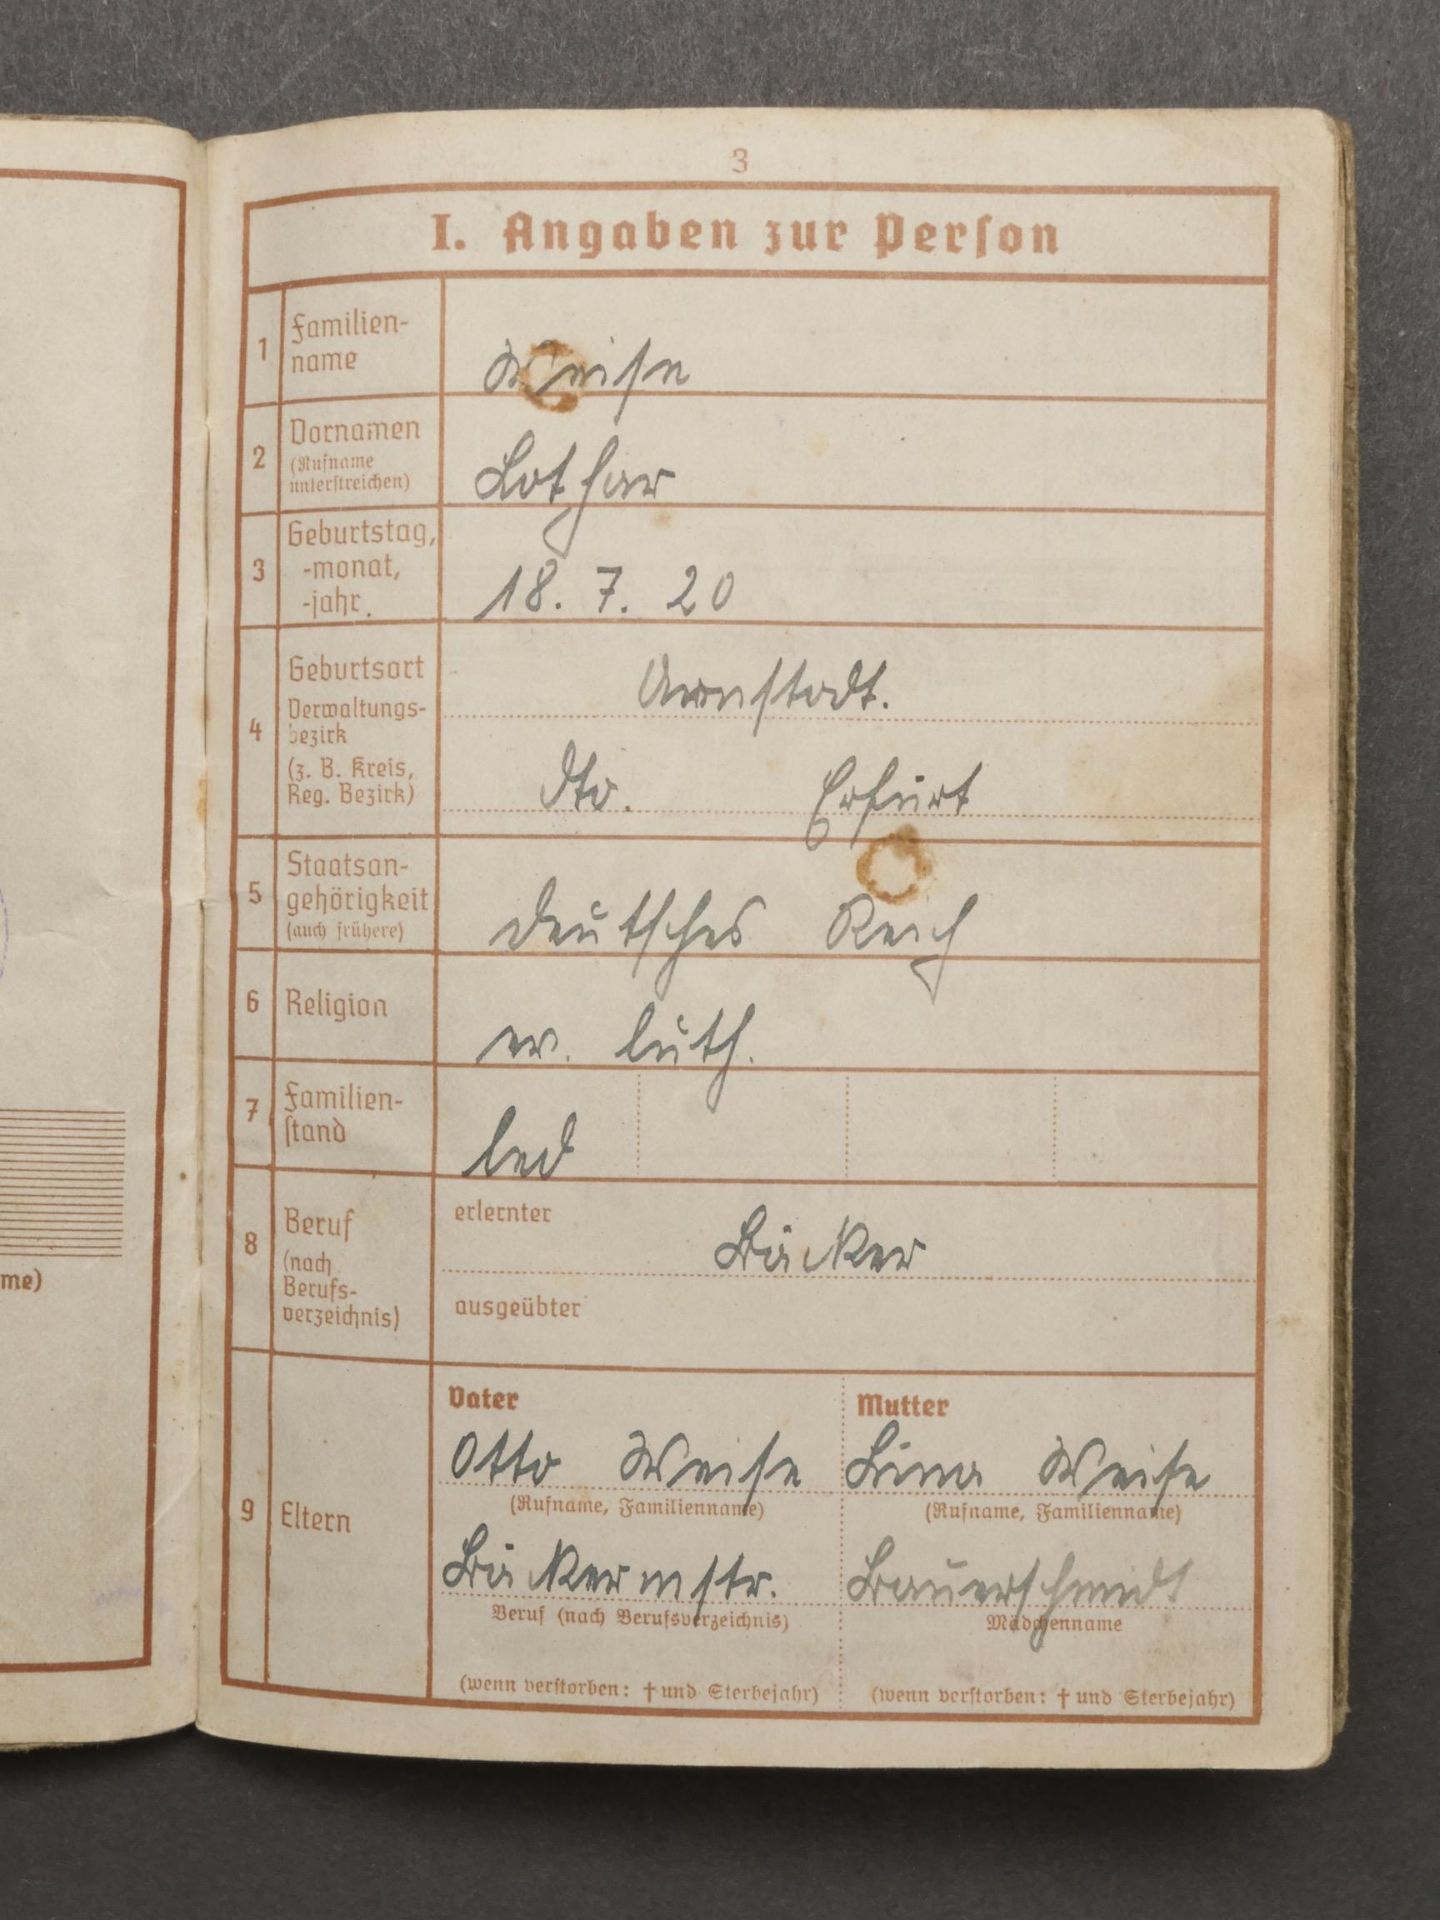 3
I. Angaben zur Person
1 Familien-
name
Weise
2 Vornamen
(Rufname
unterstreichen)
Lothar
3 Geburtstag,
-monat,
-jahr.
18. 7. 20
4 Geburtsort
Verwaltungs-
bezirk
(z. B. Kreis,
Reg. Bezirk)
Arnstadt.
dto. Erfurt
5 Staatsan-
gehörigkeit
(auch frühere)
deutsches Reich
6 Religion
ev. luth.
7 Familien-
stand
led
8 Beruf
(nach
Berufs-
verzeichnis)
erlernter
Bäcker
ausgeübter
9 Eltern
Vater
Otto Weise
(Rufname, Familienname)
Bäckermstr.
Beruf (nach Berufsverzeichnis)
(wenn verstorben: † und Sterbejahr)
Mutter
Lina Weise
(Rufname, Familienname)
Bauerschmidt
Mädchenname
(wenn verstorben: † und Sterbejahr)
me)